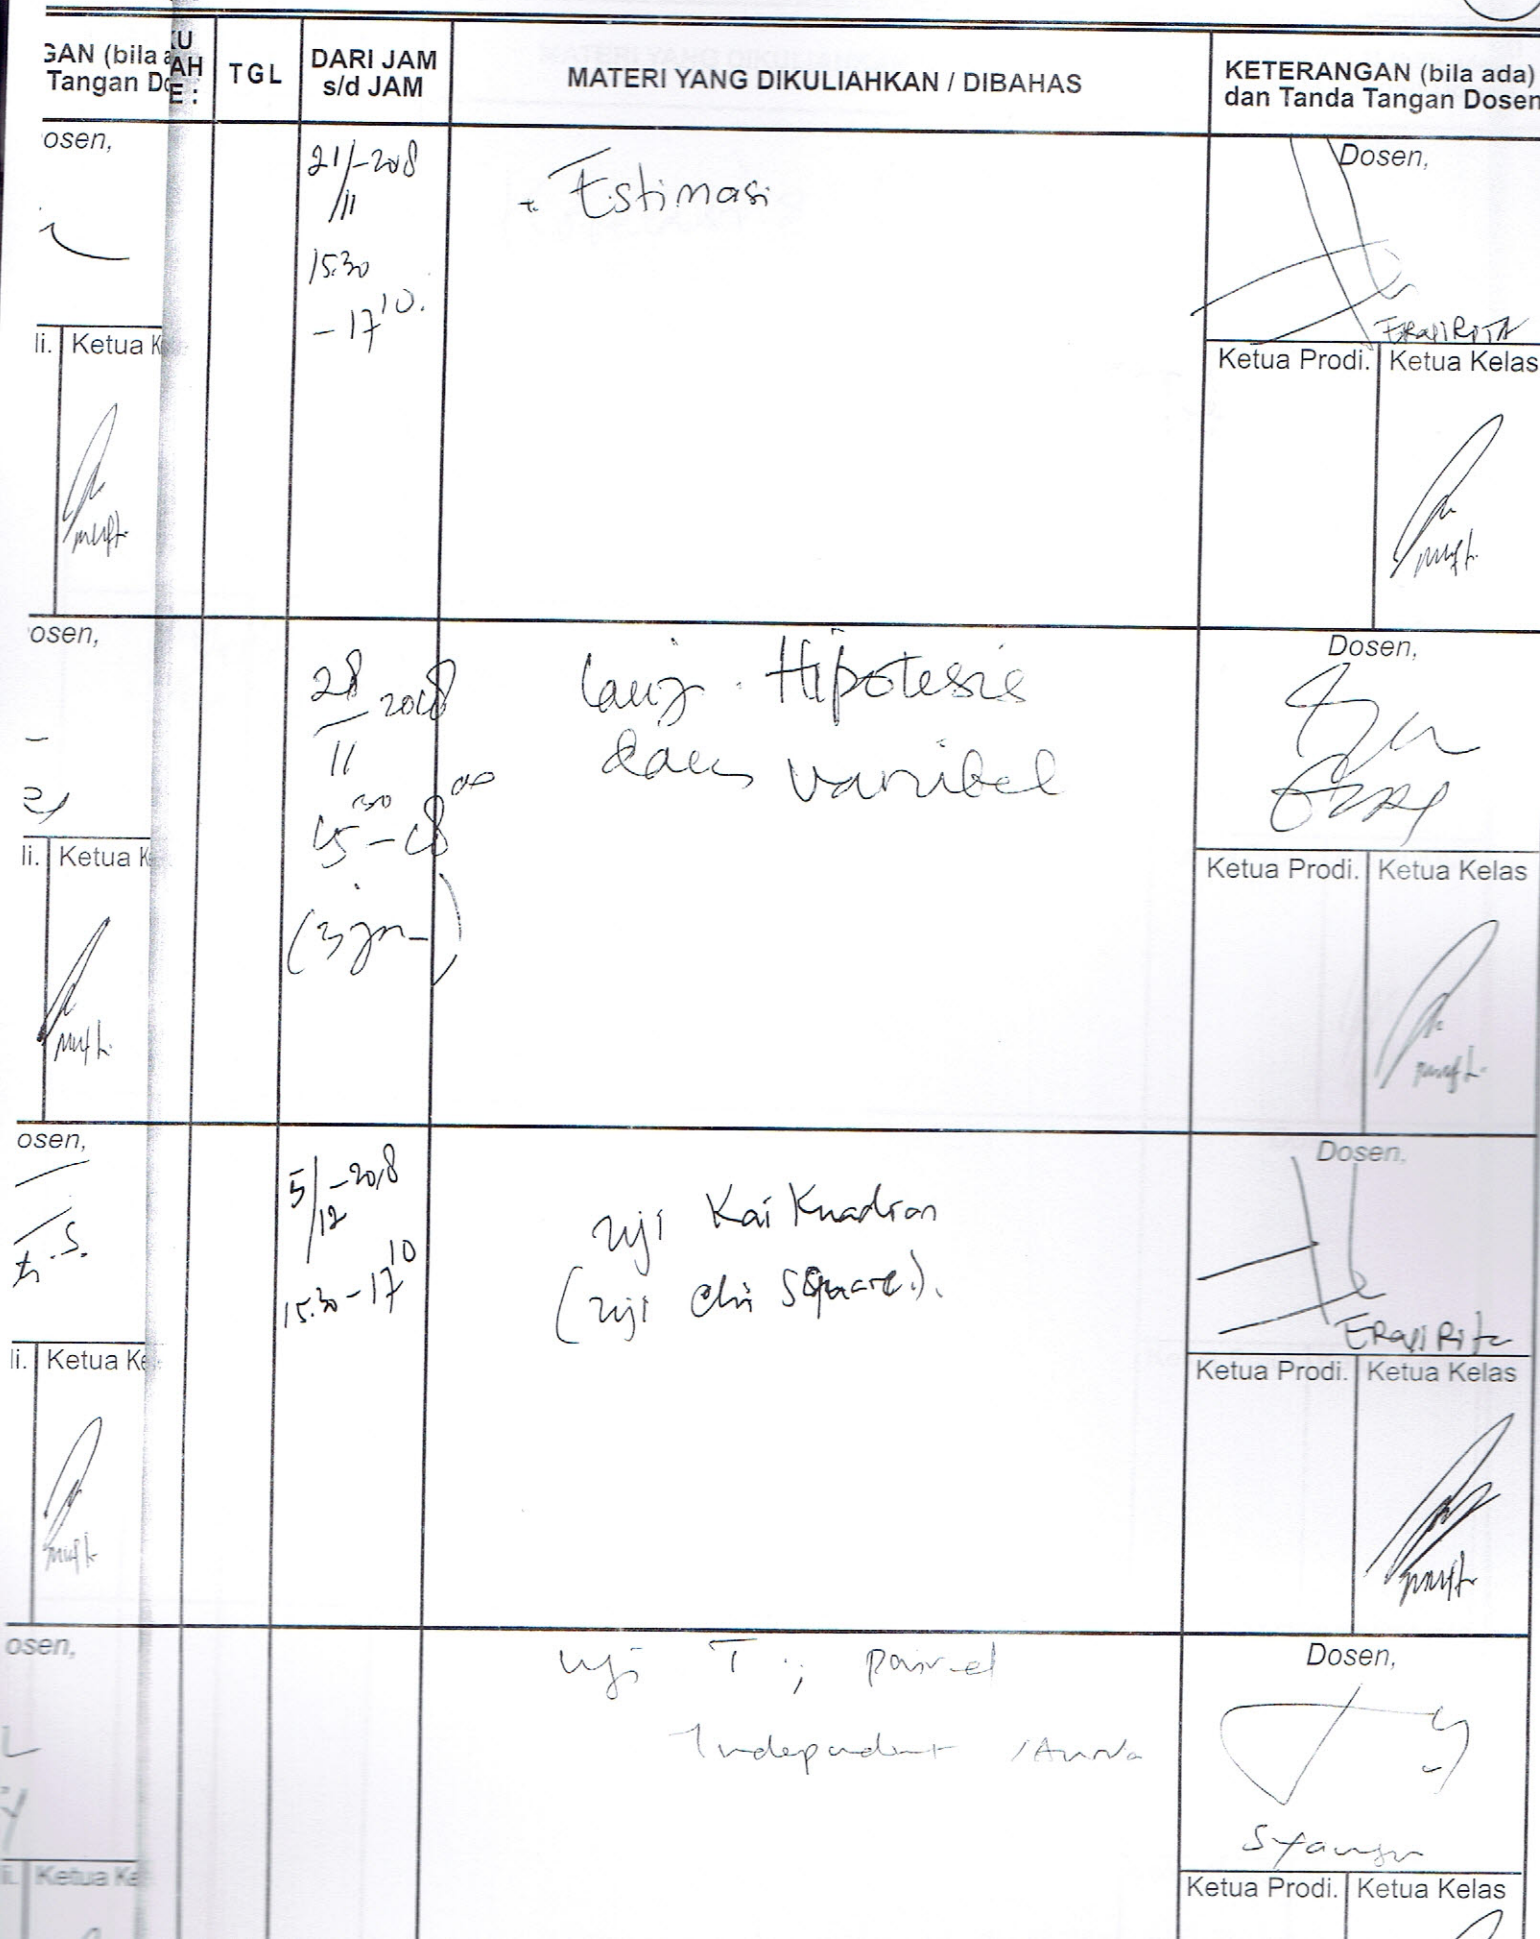 GAN (bila a
Tangan Do
KU
AH
E :
TGL
DARI JAM
s/d JAM
MATERI YANG DIKULIAHKAN / DIBAHAS
KETERANGAN (bila ada)
dan Tanda Tangan Dosen
osen,
21/11-2018
15.30
- 17 10.
Estimasi
Dosen,
ERAJI RITA
li.
Ketua K
Ketua Prodi.
Ketua Kelas
osen,
28/11 2018
15 30 - 18 00
(3 jm)
lanj. Hipotesis
dan varibel
Dosen,
li.
Ketua K
Ketua Prodi.
Ketua Kelas
osen,
5/12-2018
15.30 - 17 10
uji Kai Kuadran
(uji chi Square).
Dosen,
li.
Ketua Ke
Ketua Prodi.
Ketua Kelas
osen,
uji T ; paired
Independent
Dosen,
li.
Ketua Ke
Ketua Prodi.
Ketua Kelas